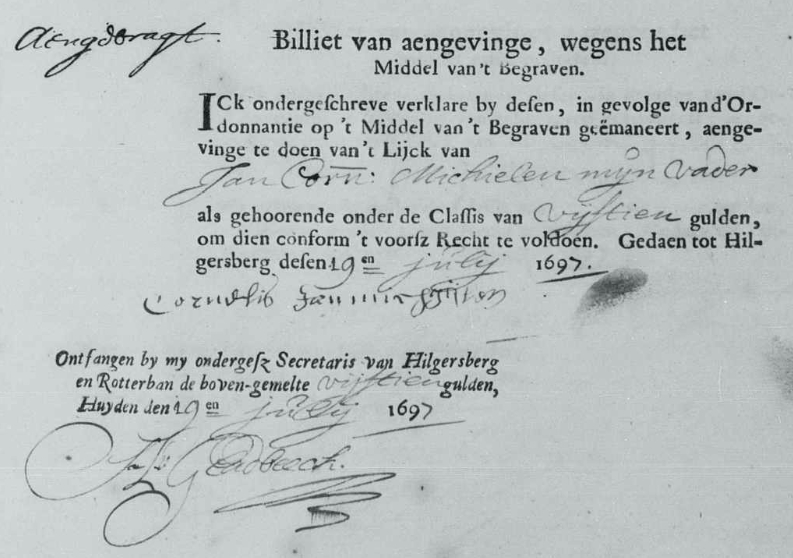 Aengebragt.
Billiet van aengevinge, wegens het
Middel van't Begraven.
ICk ondergeſchreve verklare by deſen, in gevolge vand'Or-
donnantie op 't Middel van't Begraven geëmaneert, aenge-
vinge te doen van't Lijck van
Jan Corn: Michielen mijn Vader
als gehoorende onder de Claſſis van vijftien gulden,
om dien conform 't voorſz Recht te voldoen. Gedaen tot Hil-
gersberg deſen 19 en julij 1697.
Cornelis Jan
Ontfangen by my ondergeſz Secretaris van Hilgersberg
en Rotterban de boven-gemelte vijftien gulden,
Huyden den 19 en julij 1697